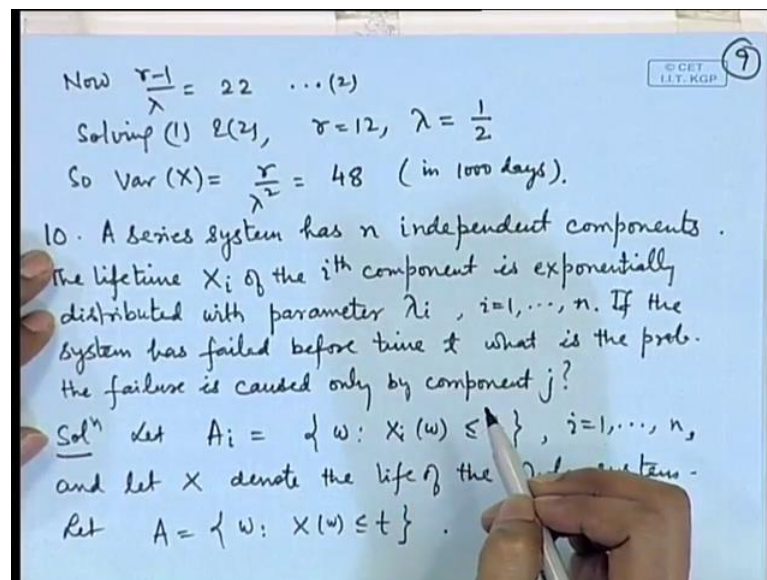 9
© CET
I.I.T. KGP
Now (r-1)/λ = 22 ...(2)
Solving (1) & (2), r = 12, λ = 1/2
So Var(X) = r/λ² = 48 (in 1000 days).
10. A series system has n independent components.
The lifetime Xi of the ith component is exponentially
distributed with parameter λi, i=1,...,n. If the
system has failed before time t what is the prob.
the failure is caused only by component j?
Solⁿ Let Ai = {ω: Xi(ω) ≤ }, i=1,...,n,
and let X denote the life of the
Let A = {ω: X(ω) ≤ t}.